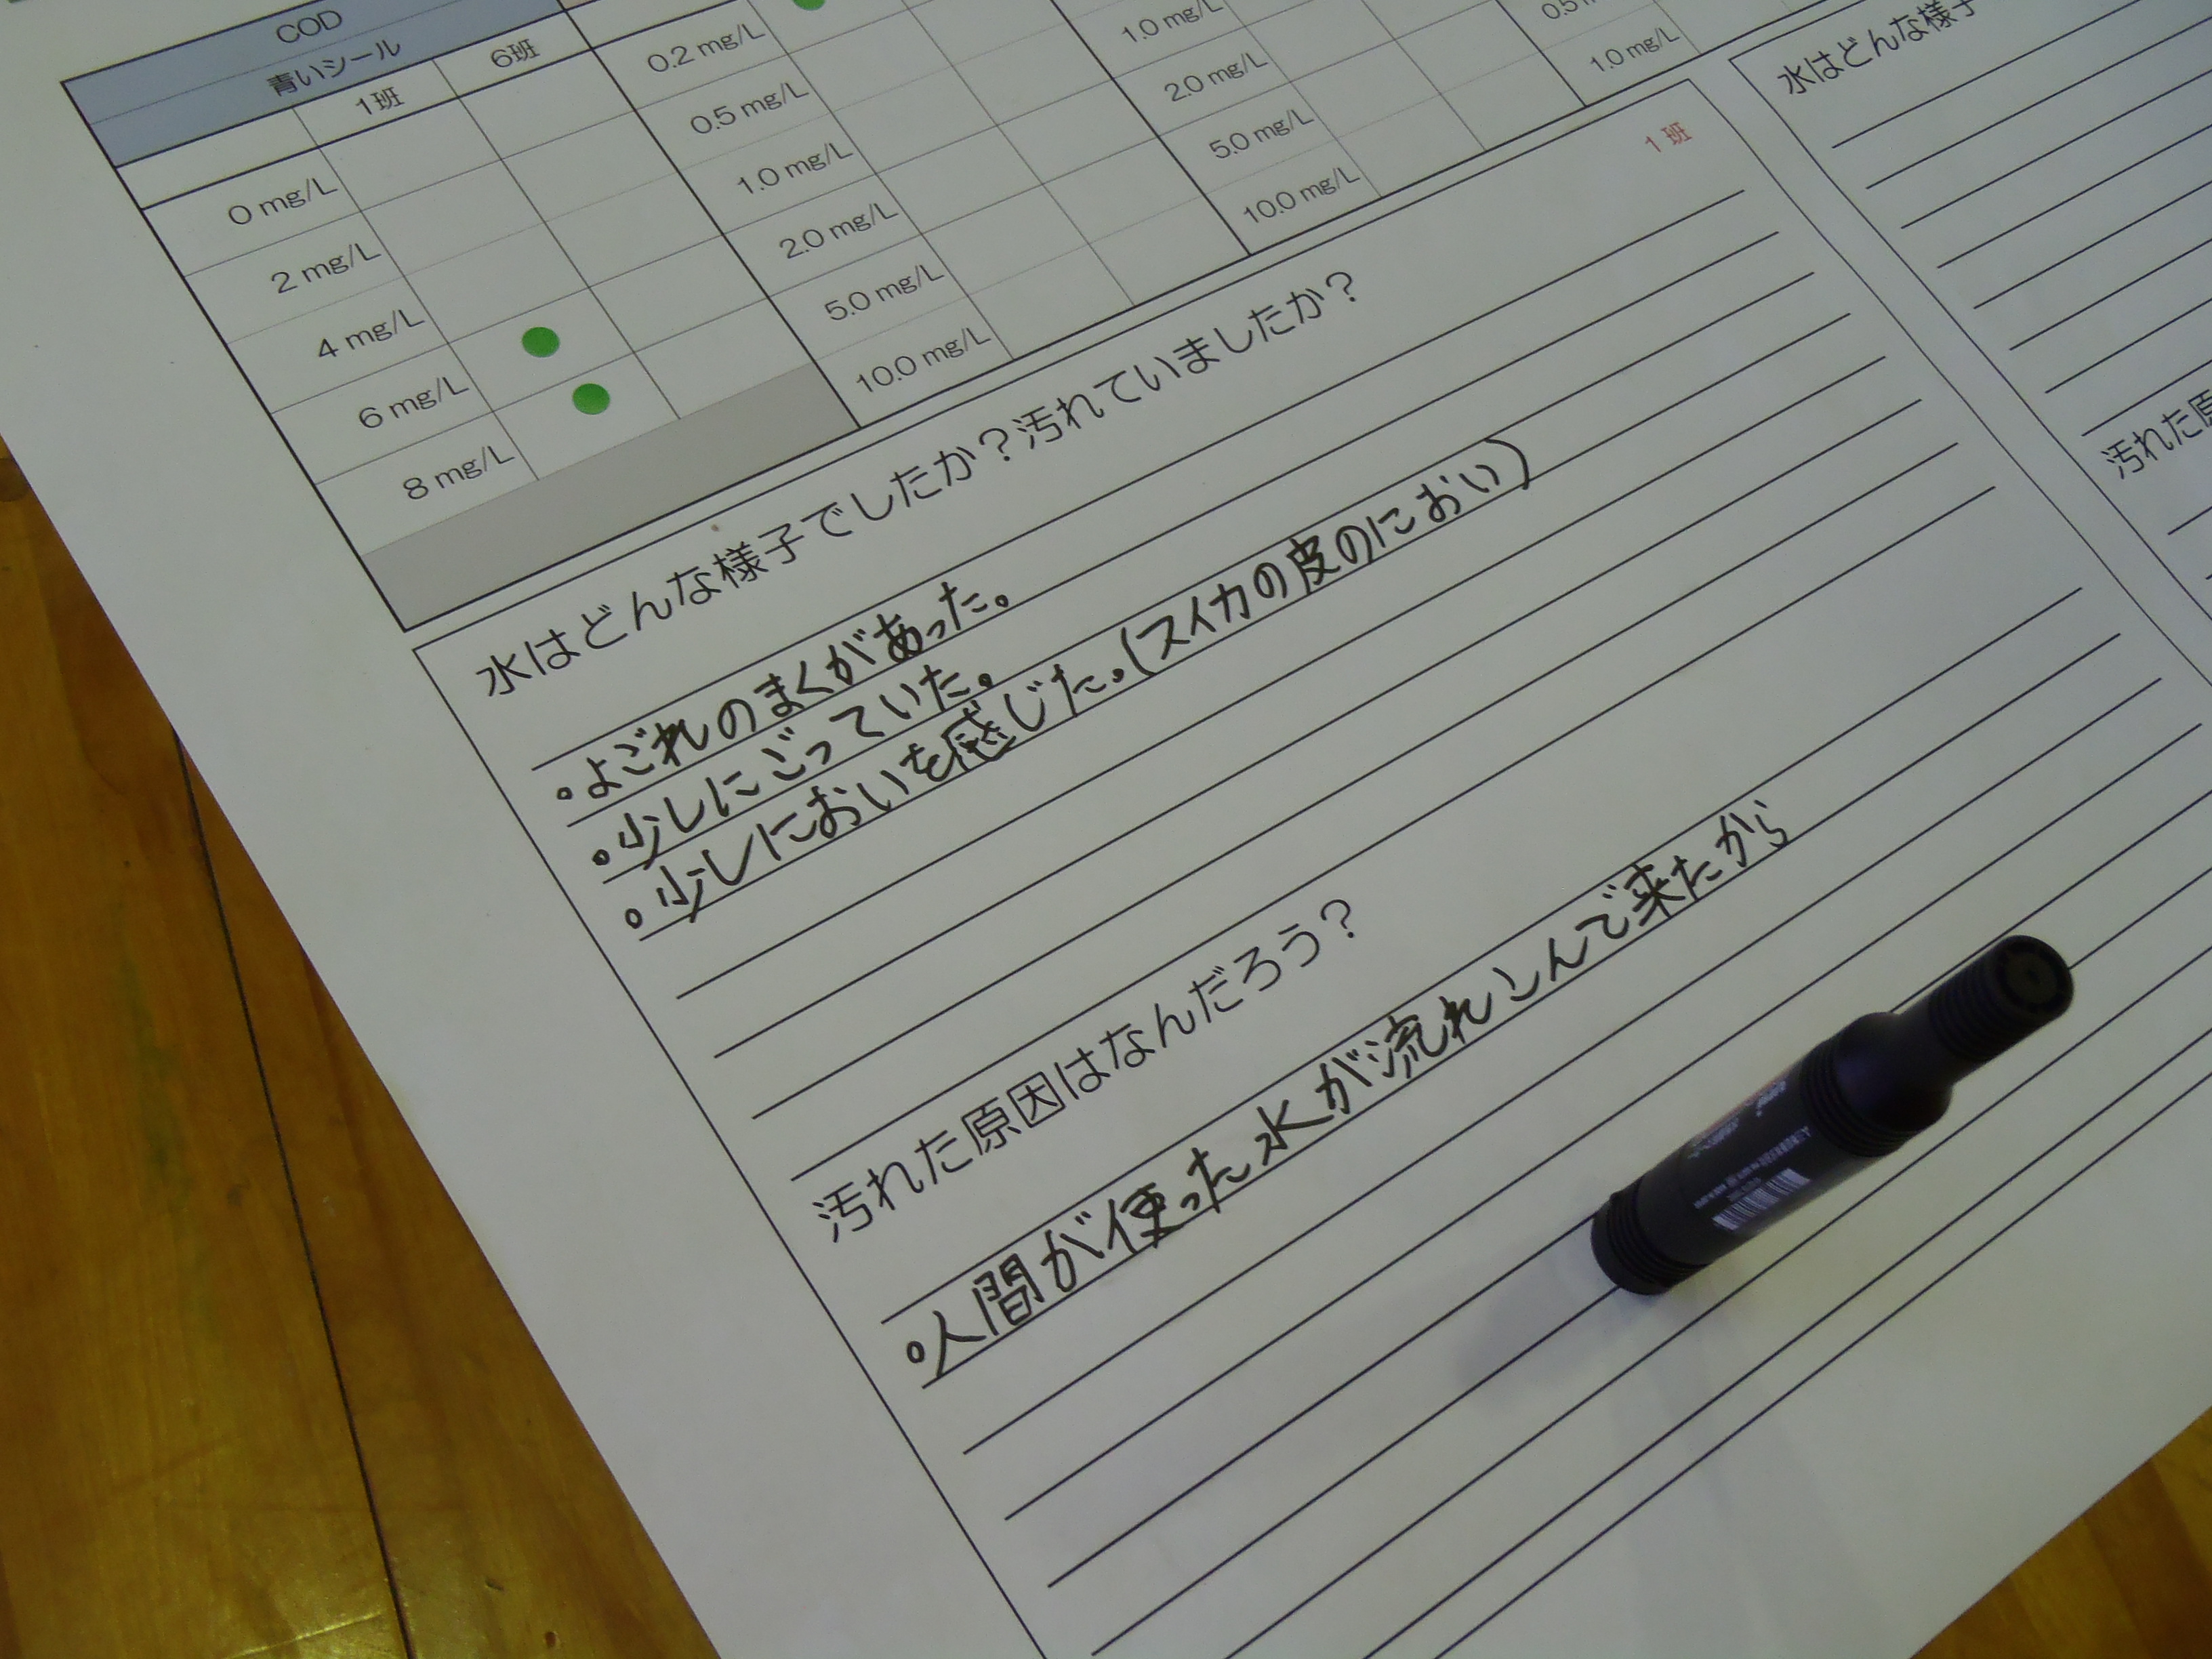 COD
青いシール
1班 6班
0 mg/L
2 mg/L
4 mg/L
6 mg/L
8 mg/L
0.2 mg/L
0.5 mg/L
1.0 mg/L
2.0 mg/L
5.0 mg/L
10.0 mg/L
1.0 mg/L
2.0 mg/L
5.0 mg/L
10.0 mg/L
1.0 mg/L
1 班
水はどんな様子でしたか？汚れていましたか？
・よごれのまくがあった。
・少しにごっていた。
・少しにおいを感じた。(スイカの皮のにおい)
汚れた原因はなんだろう？
・人間が使った水が流れこんで来たから
水はどんな様子
汚れた原